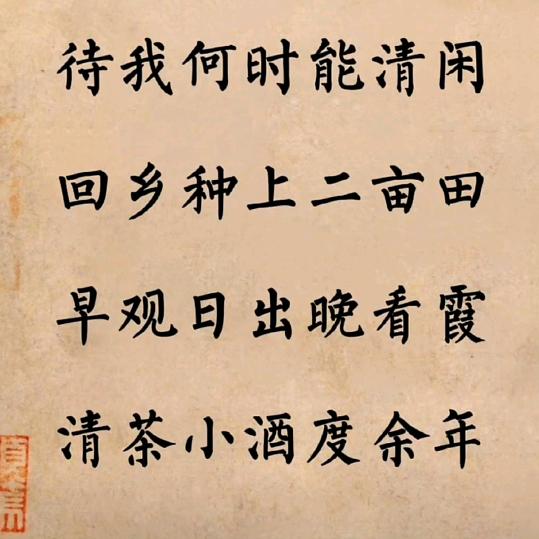 待我何时能清闲
回乡种上二亩田
早观日出晚看霞
清茶小酒度余年